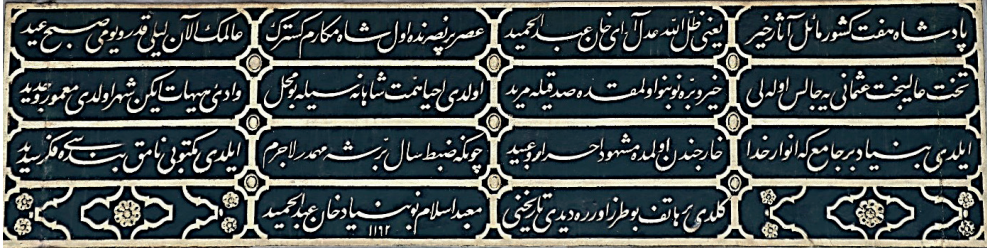 پادشاه هفت کشور مائل آثار خیر
یعنی ظل الله عدل آرای خان عبدالحمید
عصر بر نصرنده اول شاه مکارم کسترك
عالمك الآن لیلی قدر و یومی صبح عید
تخت عالیبخت عثمانی یه جالس اوله لی
خیر و بره نوبنو اولمقده صدقیله مرید
اولدی احیا همت شاهانه سیله بو محل
وادی هیهات ایکن شهر اولدی معمور و جدید
ایلدی بنیاد بر جامع که انوار خدا
خارجندن اولمده مشهود احرار و عبید
چونکه ضبط سال مهمدر لاجرم
ایلدی مکتوبی نامق بنده سی ده فکر سدید
کلدی بر هاتف بو طرز اوزره دیدی تاریخنی
معبد اسلام نو بنیاد خان عبدالحمید
۱۱۹۲